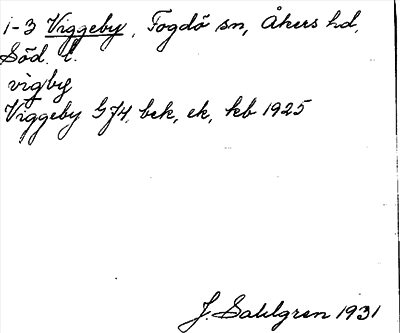 1-3 Viggeby, Fogdö sn, Åkers hd,
Söd. l.
vigby
Viggeby G74, bek, ek, kb 1925
J. Sahlgren 1931